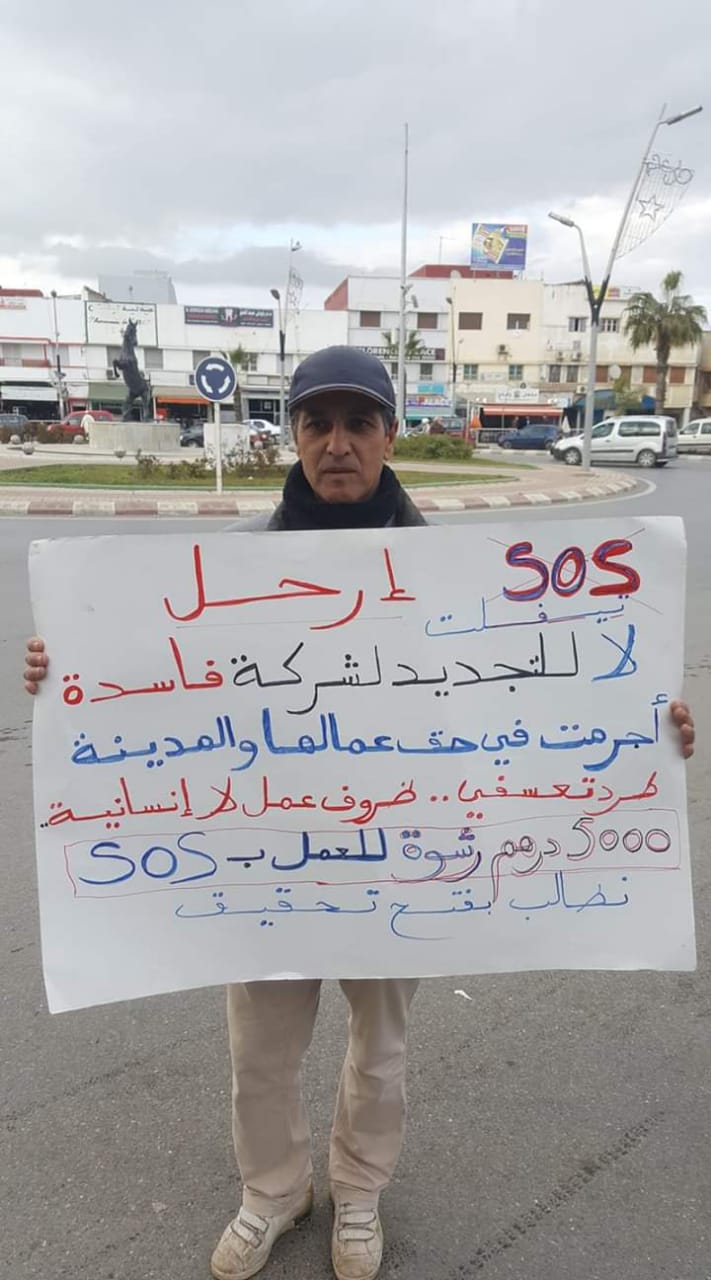 SOS إرحل
تيفلت
لا للتجديد لشركة فاسدة
أجرمت في حق عمالها والمدينة
طرد تعسفي .. ظروف عمل لا إنسانية..
5000 درهم رشوة للعمل ب SOS
نطالب بفتح تحقيق